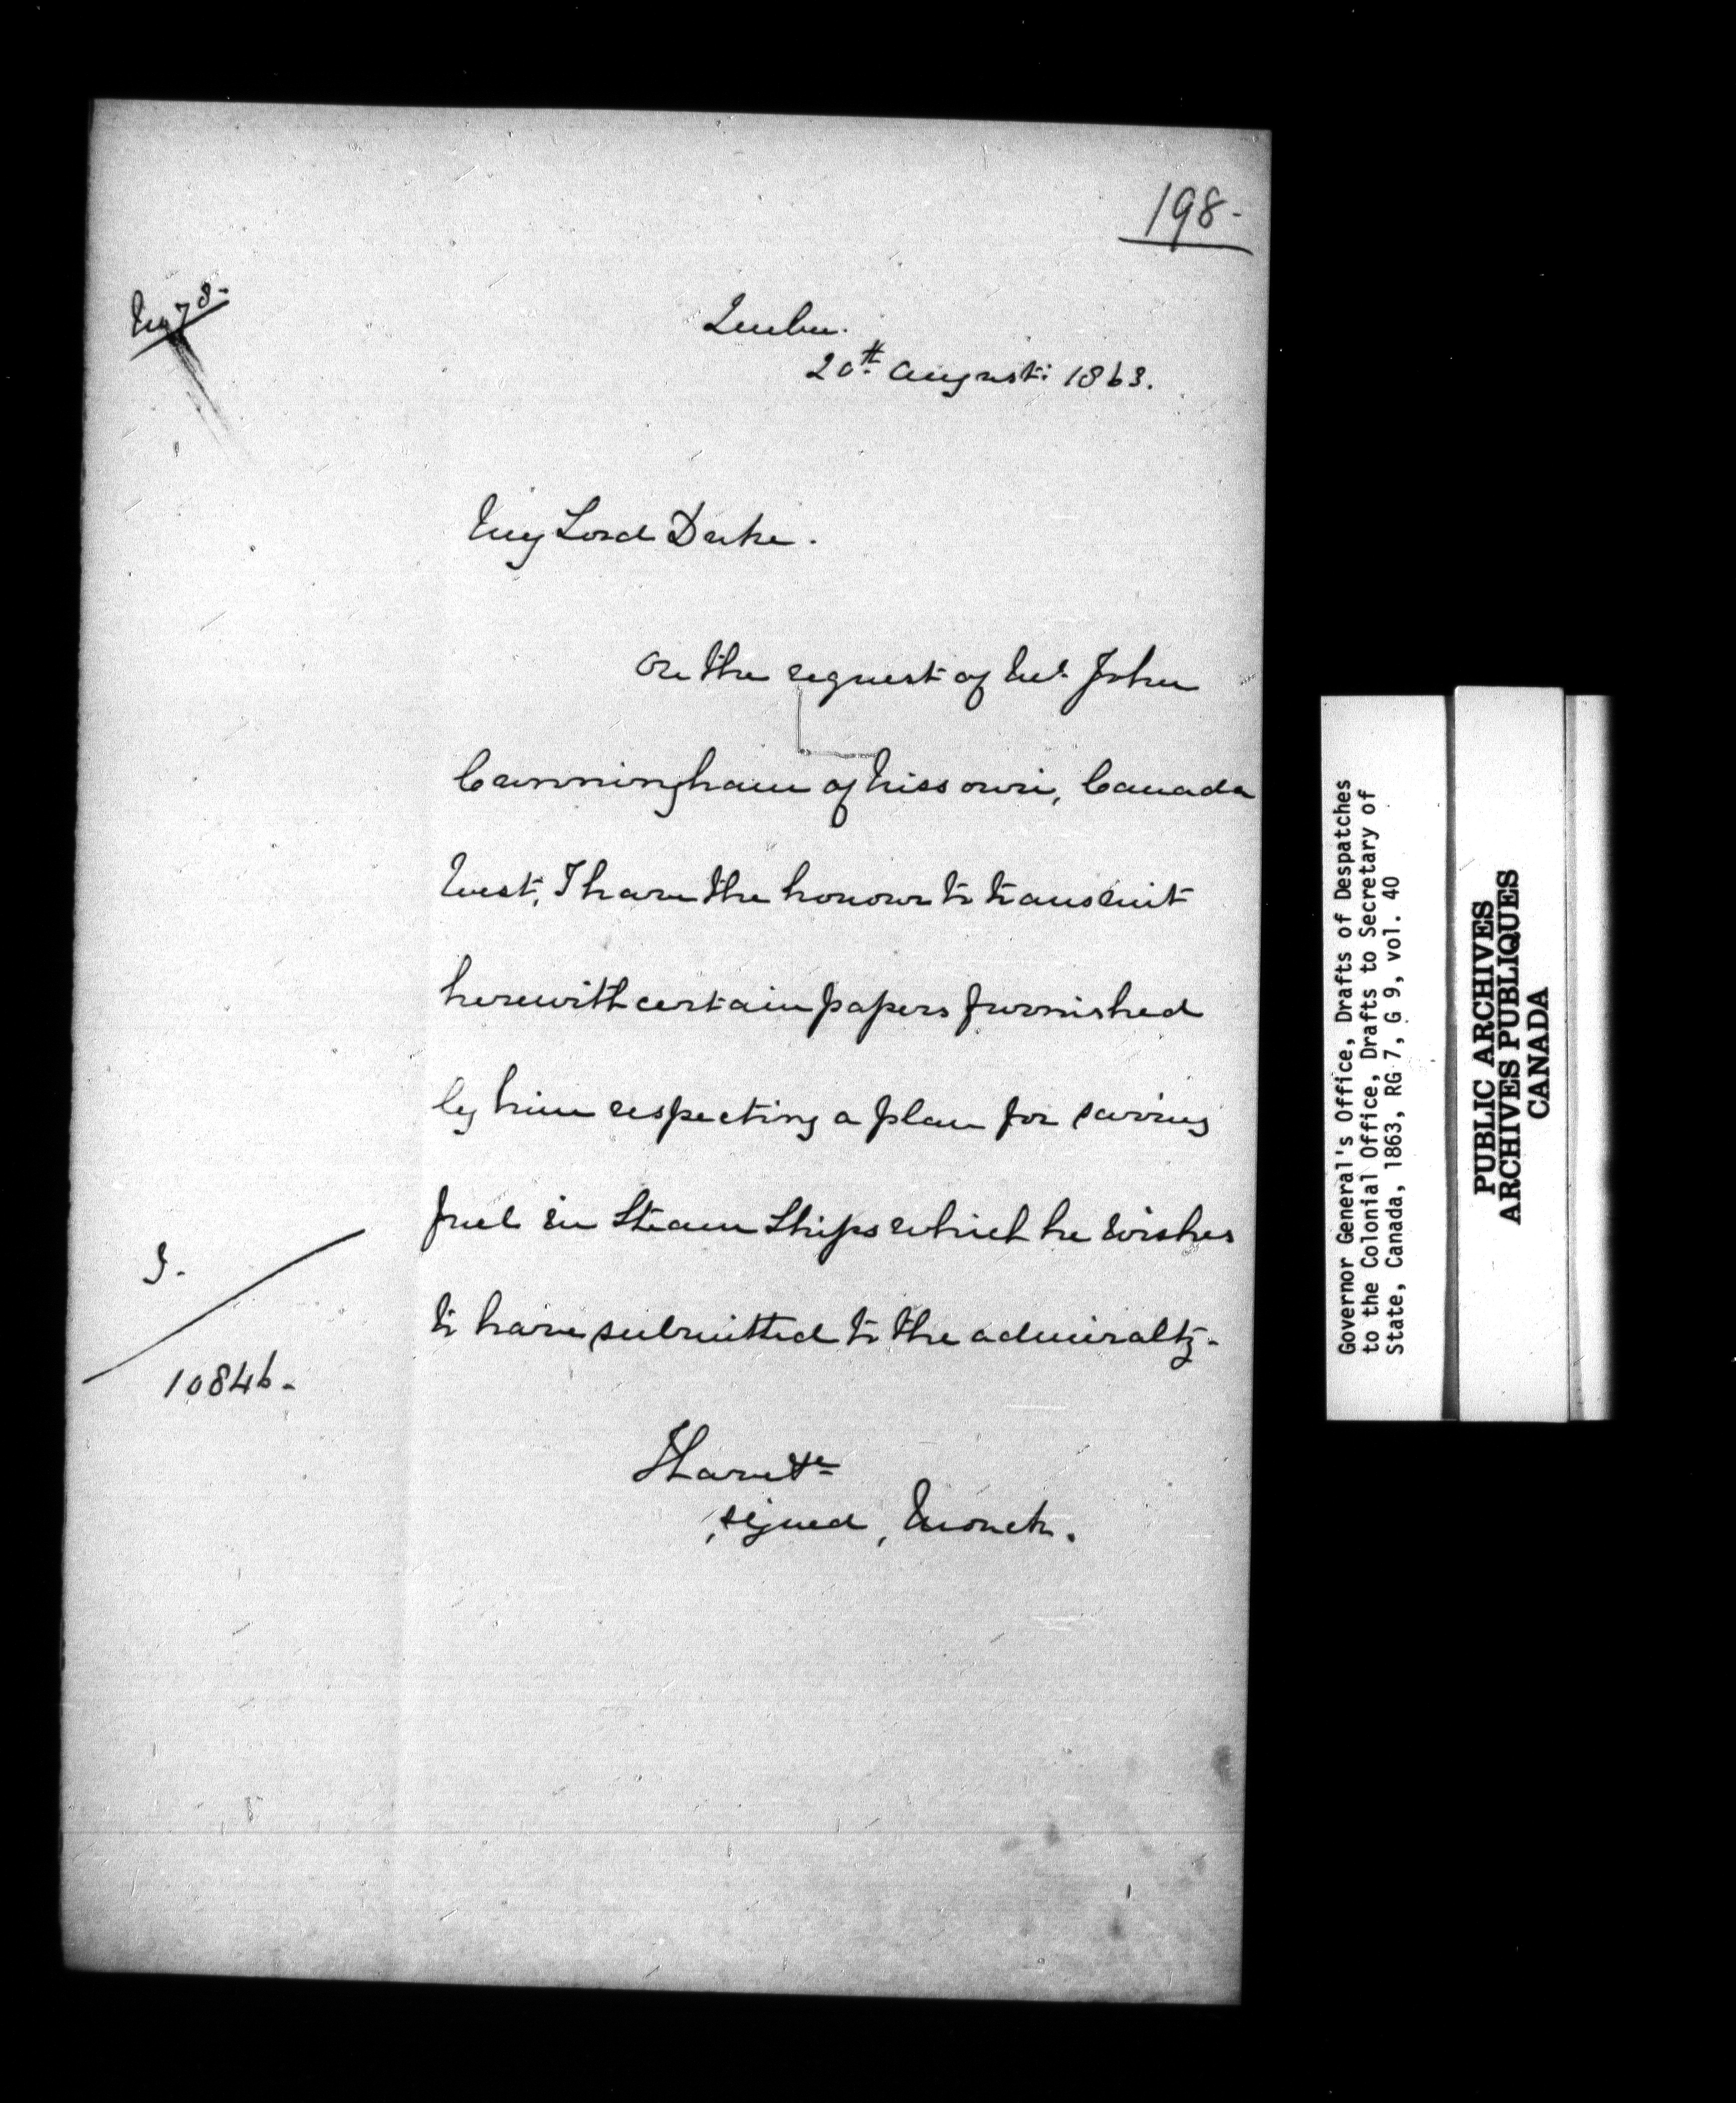 198-
No 78-
Quebec.
20th August: 1863.
My Lord Duke.
On the request of Mr. John
Cunningham of Nissouri, Canada
West, I have the honour to transmit
herewith certain papers furnished
by him respecting a plan for saving
fuel in Steam Ships which he wishes
to have submitted to the admiralty-
10846-
I have &c
signed, Monck.
Governor General's Office, Drafts of Despatches
to the Colonial Office, Drafts to Secretary of
State, Canada, 1863, RG 7, G 9, vol. 40
PUBLIC ARCHIVES
ARCHIVES PUBLIQUES
CANADA